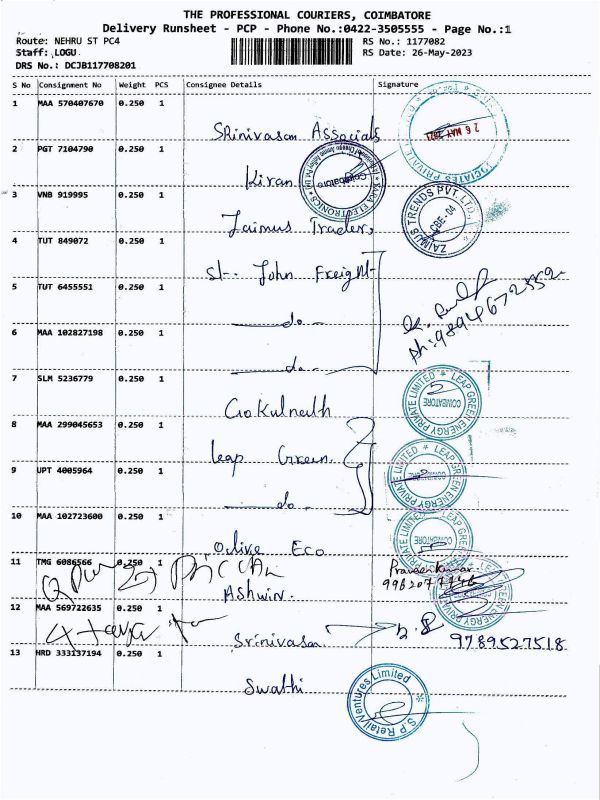 THE PROFESSIONAL COURIERS, COIMBATORE
Delivery Runsheet - PCP - Phone No.:0422-3505555 - Page No.:1
Route: NEHRU ST PC4 RS No.: 1177082
Staff: LOGU RS Date: 26-May-2023
DRS No.: DCJB117708201
S No Consignment No Weight PCS Consignee Details Signature
1 MAA 570407670 0.250 1
Srinivasan Associats
26 MAY
CIATES PRIVATE
2 PGT 7104790 0.250 1
Kiran
KAZA ELECTRONICS
Coimbatore
3 VNB 919995 0.250 1
Zaimus Traders
ZAIMUS TRENDS PVT. LTD.,
CBE - 04
4 TUT 849072 0.250 1
St. John Freight
5 TUT 6455551 0.250 1
do
ph:9894672352
6 MAA 102827198 0.250 1
do
7 SLM 5236779 0.250 1
Gokulnath
LEAP GREEN ENERGY PRIVATE LIMITED
COIMBATORE
8 MAA 299045653 0.250 1
Leap Green
LEAP GREEN ENERGY PRIVATE LIMITED
9 UPT 4005964 0.250 1
do
10 MAA 102723600 0.250 1
LEAP GREEN ENERGY PRIVATE LIMITED
COIMBATORE
Olive Eco
11 TMG 6086566 0.250 1
Praveenkumar
Ashwin
12 MAA 569722635 0.250 1
Srinivasan
9789527518
13 HRD 333137194 0.250 1
Swathi
S P Retail Ventures Limited